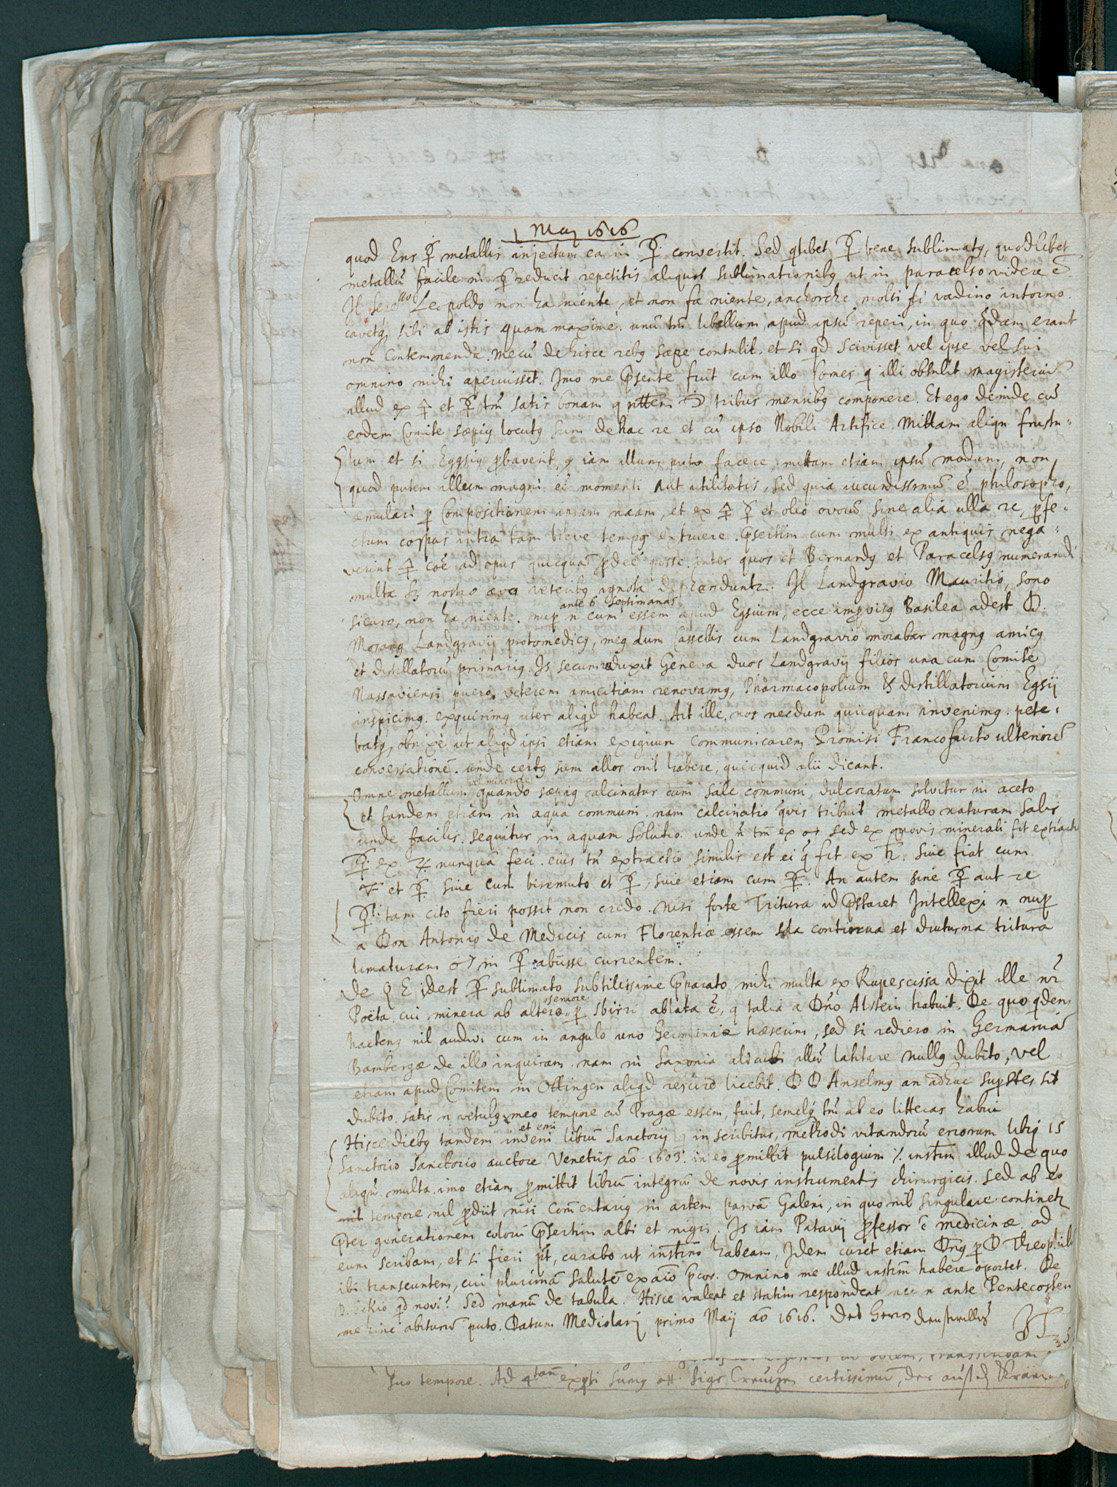 1 Maij 1616
quod Ens ☿ metallis injectum ea in ☿ convertit. Sed qlibet ☿ bene sublimatq, quodlibet
metallū facile in ☿ reducit repetitis aliquot sublimationibq ut in paracelso videre ē
Il Sermo Leopoldo non ha niente, et non fa niente, anchorche molti si vadino intorno
cavetq sibi ab istis quam maxime. unū tm libellum apud ipsū reperi, in quo qdam erant
non contemnenda. mecū de hisce rebq saepe contulit. et si qd scivisset vel ipse vel sui
omnino mihi aperuisset. Imo me psente fuit cum illo Comes q illi obtulit magisterium
illud ex et ☿ tm satis bonam tribus mensibq componere. Et ego deinde cū
eodem Comite saepiq locutq sum de hac re et cū ipso Nobili Artifice. Mittam aliqu frustu=
lum et si Eggsiq pbaverit, q iam illum puto facere, mittam etiam ipsū modum, non
quod putem illum magni eē momenti aut utilitatis, sed quia iucundissimū ē philosopho,
amulari p compositionem nram, et ex ☿ et oleo ovorū sine alia ulla re, pfe=
ctum corpus intra tam breve tempq extruere. psertim cum multi ex antiquis nega=
verint coē ad opus quicquā pdeē posse, inter quos et Bernardq et Paracelsq numerandi
multa n. nostro aevo veteribq ignota dephenduntr. Il Landgravio Mauritio, sono
sicuro, non ha niente. nup n cum ante 6 septimanas essem apud Egsium, ecce improvisq Basilea adest D.
Mosanq Landgravij protomedicq, meq dum Cassellis cum Landgravio morabar magnq amicq
et distillatorū primariq. Is secum aduxit Geneva duos Landgravij filios una cum Comite
Nassaviensi puero, veterem amicitiam renovamq, Pharmacopolium & distillatorium Egsij
inspicimq. exquirimq uter aliqd habeat. Ait ille, nos necdum quicquam invenimq. pete=
batq, obnixe ut aliqd ipsi etiam exiguum communicarem. Promisi Francofurto ulteriorē
conversationē. unde certq sum illos nil habere, quicquid alii dicant.
Omne metallum vel minerale quando saepiq calcinatur cum sale communi, dulcoratum solvitur in aceto
et tandem etiam in aqua communi. nam calcinatio qvis tribuit metallo naturam salis
unde facilis sequitur in aquam solutio. unde n tm ex sed ex quovis minerali fit extractio
☿. ex ♃ nunquā feci. eius tn extractio similis est ei q fit ex ♄. sive fiat cum
et ☿. sive cum bisemuto et ☿, sive etiam cum ☿. An autem sine ☿ aut re
☿li tam cito fieri possit non credo. nisi forte Tritura id pstaret. Intellexi n nup
a Don Antonio de Medicis cum Florentiae essem sola continua et diuturna tritura
limaturam in ☿ abiisse currentem.
De Q E idest ☿ sublimato subtilissime pparato, mihi multa ex Rupescissa dixit ille nr
Poëta, cui minera ab altero seniore p Sbirri ablata ē, q talia a Dno Alstein habuit. De quo qdem
hactenq nil audivi cum in angulo uno Germaniae haeserim, sed si rediero in Germaniā
Bambergae de illo inquiram. nam in Saxonia alicubi illū latitare nullq dubito, vel
etiam apud Comitem in Ottingen aliqd rescire licebit. D D Anselmq an adhuc supstes sit
dubito. satis n vetulq meo tempore cū Pragae essem, fuit, semelq tm ab eo litteras habui
Hisce diebq tandem inveni et emi librū Sanctorij q inscribitur, methodi vitandorū errorum libri 15
Sanctorio Sanctorio auctore Venetiis aō 1603. in eo pmittit pulsilogium instm illud de quo
aliqn multa. imo etiam pmittit librū integrū de novis instrumentis chirurgicis. Sed ab eo
tempore nil pdiit nisi Comentariq in artem parvā Galeni, in quo nil singulare continetr
pter generationem colorū psertim albi et nigri. Is iam Patavij pfessor ē medicinae, ad
eum scribam, et si fieri pt, curabo ut instmo habeam. Idem curet etiam Dnq p D Theophilū
ibi transeuntem, cui plurimā salutē ex aīo pcor. Omnino me illud instm habere oportet. De
D. Eckio qd novi? Sed manū de tabula. Hisce valeat et statim respondeat nec n ante Pentecosten
me hinc abiturū puto. Datum Mediolani primo Maij aō 1616. Des Herrn dienstwilligr
suo tempore. Ad expti sumq certissimū, der